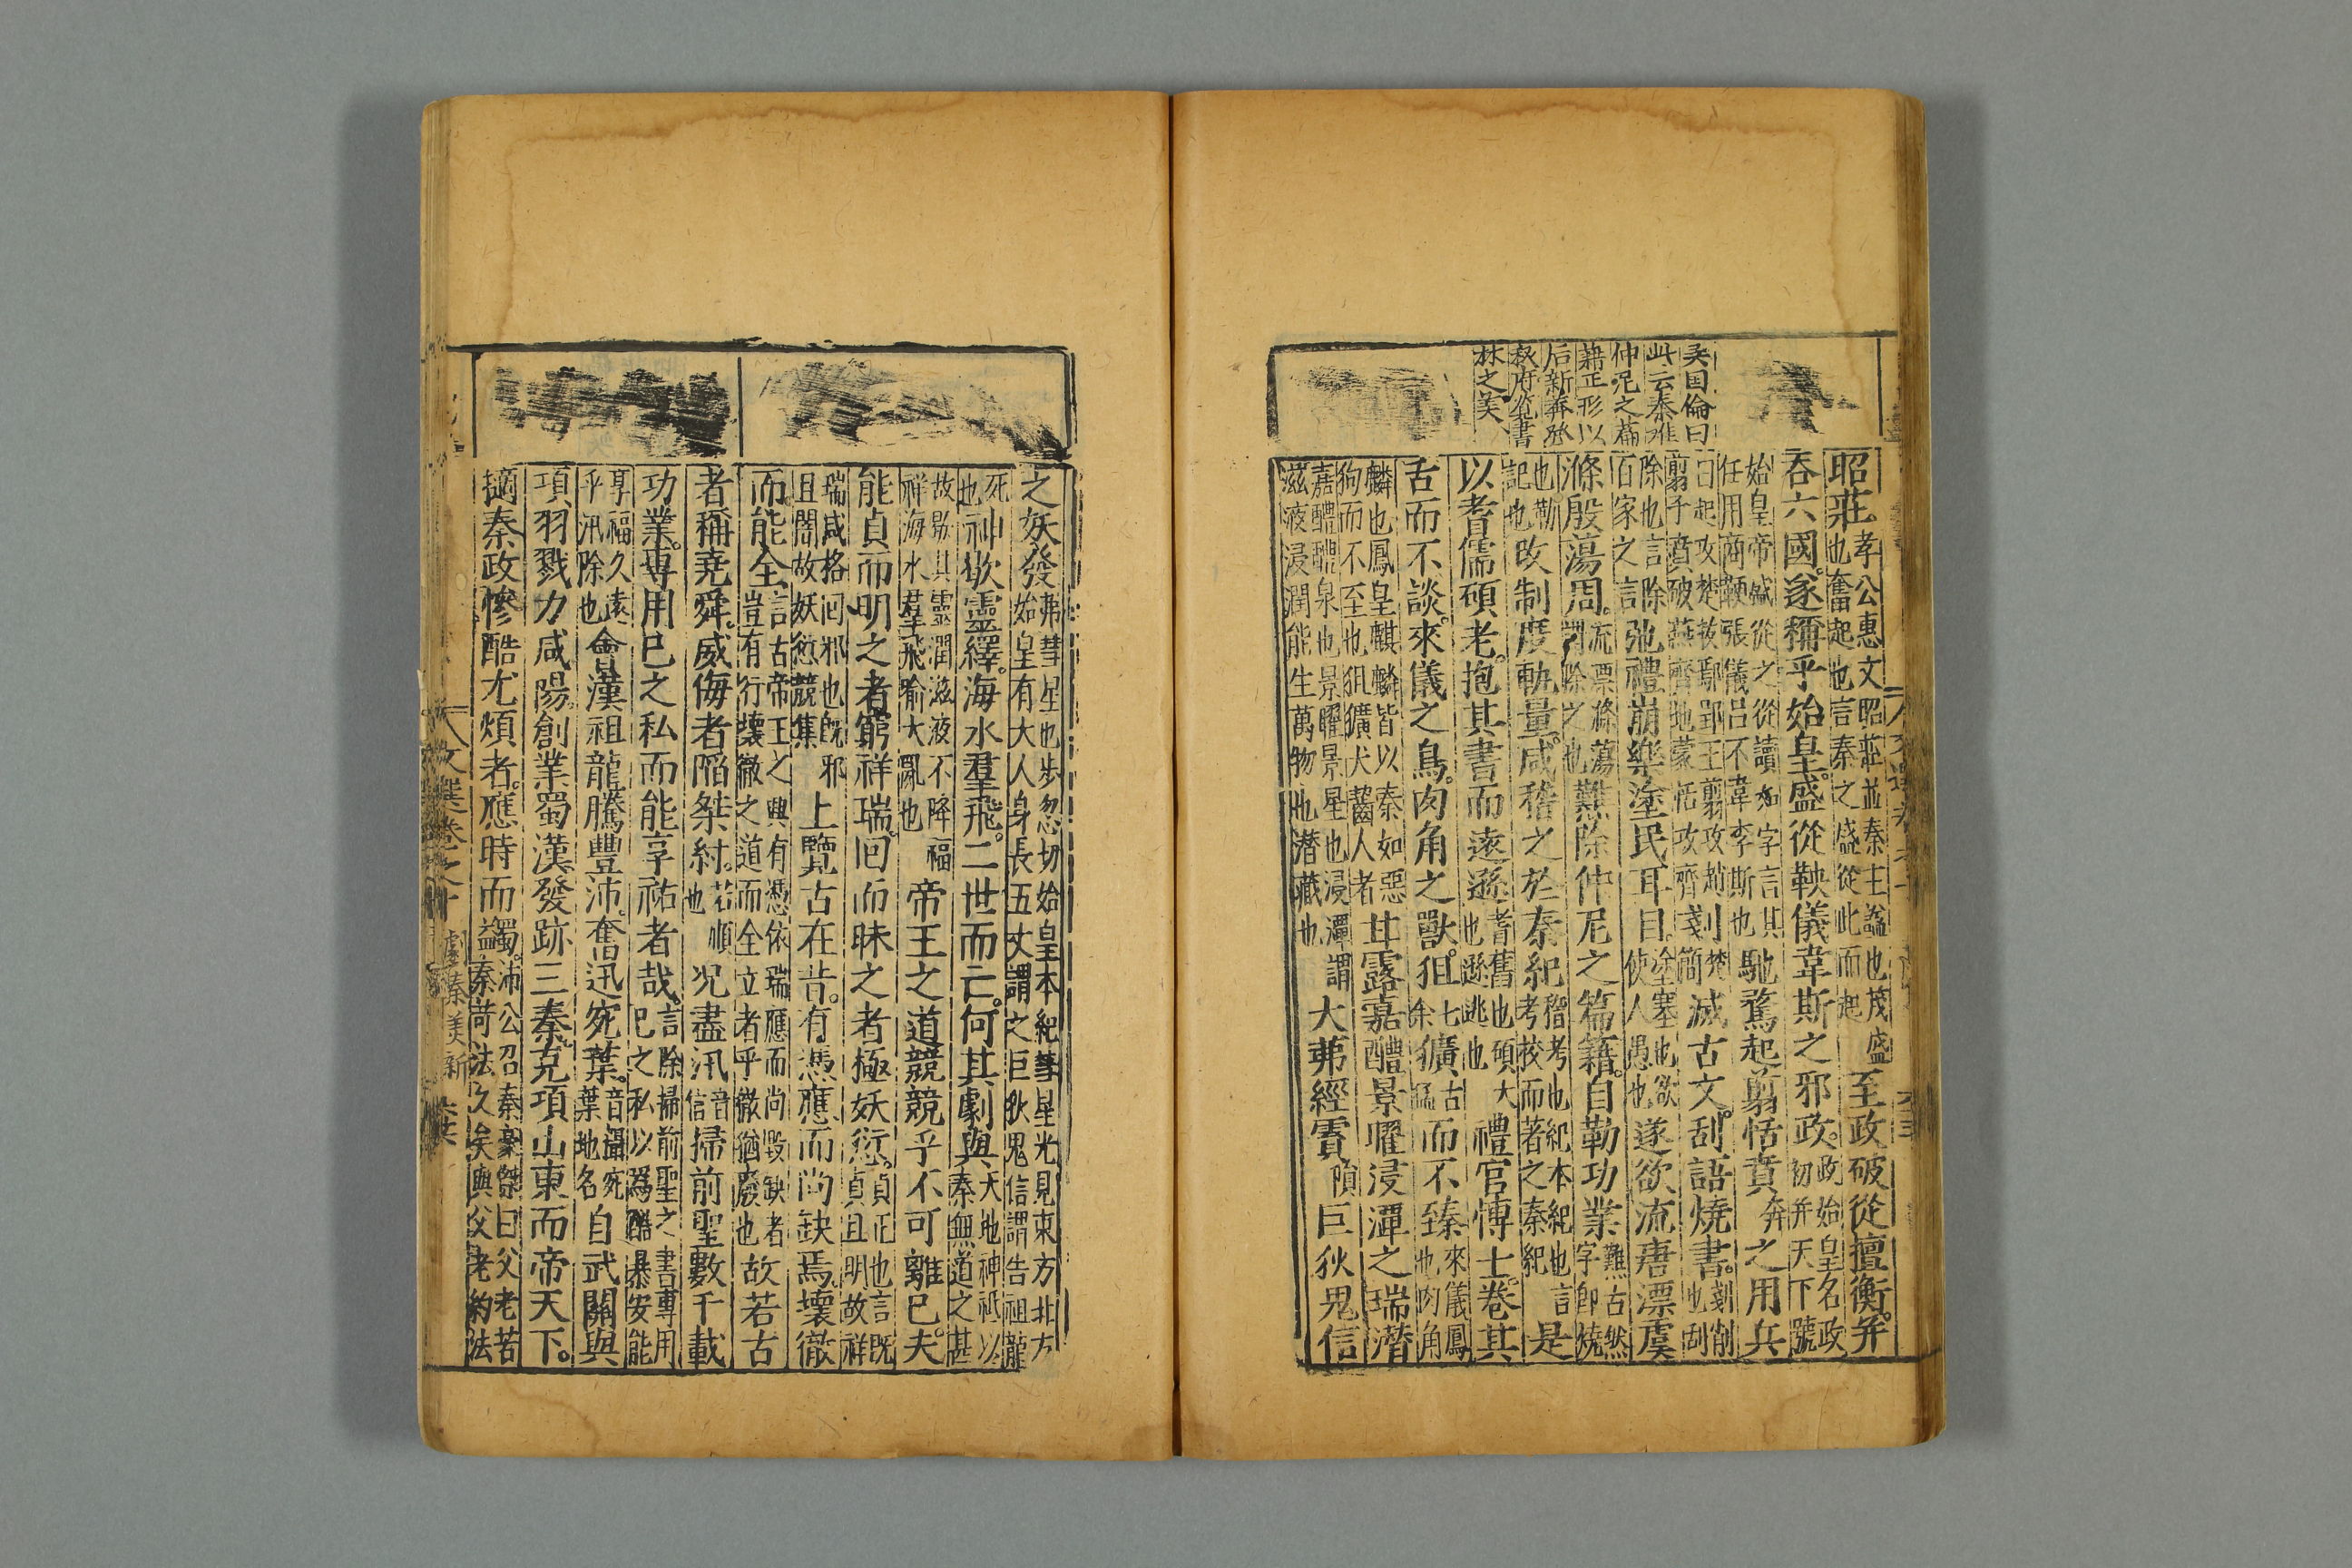 昭莊孝公惠文昭莊並秦王謚也茂盛也奮起也言秦之盛從此而起至政破從擅衡。并
吞六國。遂稱乎始皇。盛從鞅儀韋斯之邪政。政始皇名政初并天下號
始皇帝盛從之從讀如字言其任用商鞅張儀呂不韋李斯也馳騖起翦恬賁奔之用兵
白起攻楚拔鄢郢王翦攻趙翦子賁破燕齊地蒙恬攻齊刬楚戔簡滅古文。刮語燒書。刬削也刮
除也言除百家之言弛禮崩樂塗民耳目。塗塞也欲使人愚也遂欲流唐漂虞
滌殷蕩周。流漂滌蕩謂除之也難除仲尼之篇籍。自勒功業難古然字卽燒
也勒記也改制度軌量。咸稽之於秦紀稽考也紀本紀也言考校而著之秦紀是
以耆儒碩老。抱其書而遠遜耆舊也碩大也遜逃也禮官博士。卷其
舌而不談。來儀之鳥。肉角之獸。狙七余獷、古猛而不臻來儀鳳也肉角
麟也鳳皇麒麟皆以秦如惡狗而不至也狙獷犬齧人者甘露嘉醴景曜浸潭之瑞潛
嘉醴醴泉也景曜景星也浸潭謂滋液浸潤能生萬物也潛藏也大茀經霣隕巨狄鬼信
吳国倫曰
此云秦难
仲尼之篇
籍正形以
后新莽發
秘府覽書
林之美
之妖發茀彗星也步忽切始皇本紀彗星光見東方北方始皇有大人身長五丈謂之巨狄鬼信謂告祖龍
死也神歇靈繹。海水羣飛。二世而亡。何其劇與天地神祗以秦無道之甚
故歇其靈潤滋液不降福祥海水羣飛喻大亂也帝王之道競競乎不可離已。夫
能貞而明之者窮祥瑞。回而昧之者極妖愆。貞正也言既貞且明故祥
瑞咸格回邪也既邪且闇故妖愆競集上覽古在昔。有憑應而尚缺焉壞徹
而。能全言古帝王之興有憑依瑞應而尚毀缺者豈有行壞徹之道而全立者乎徹猶廢也故若古
者稱堯舜。威侮者陷桀紂。若順也况盡汛音信掃前聖數千載
功業。專用已之私而能享祐者哉言除掃前聖之書專用已之私以為酷暴安能
享福久遠乎汛除也會漢祖龍騰豐沛。奮迅宛葉。音攝宛葉地名自武關與
項羽戮力咸陽。創業蜀漢發跡三秦。克項山東而帝天下。
擿秦政慘酷尤煩者。應時而蠲。沛公召秦豪傑曰父老苦秦苛法久矣與父老約法
文選卷之十 劇秦美新